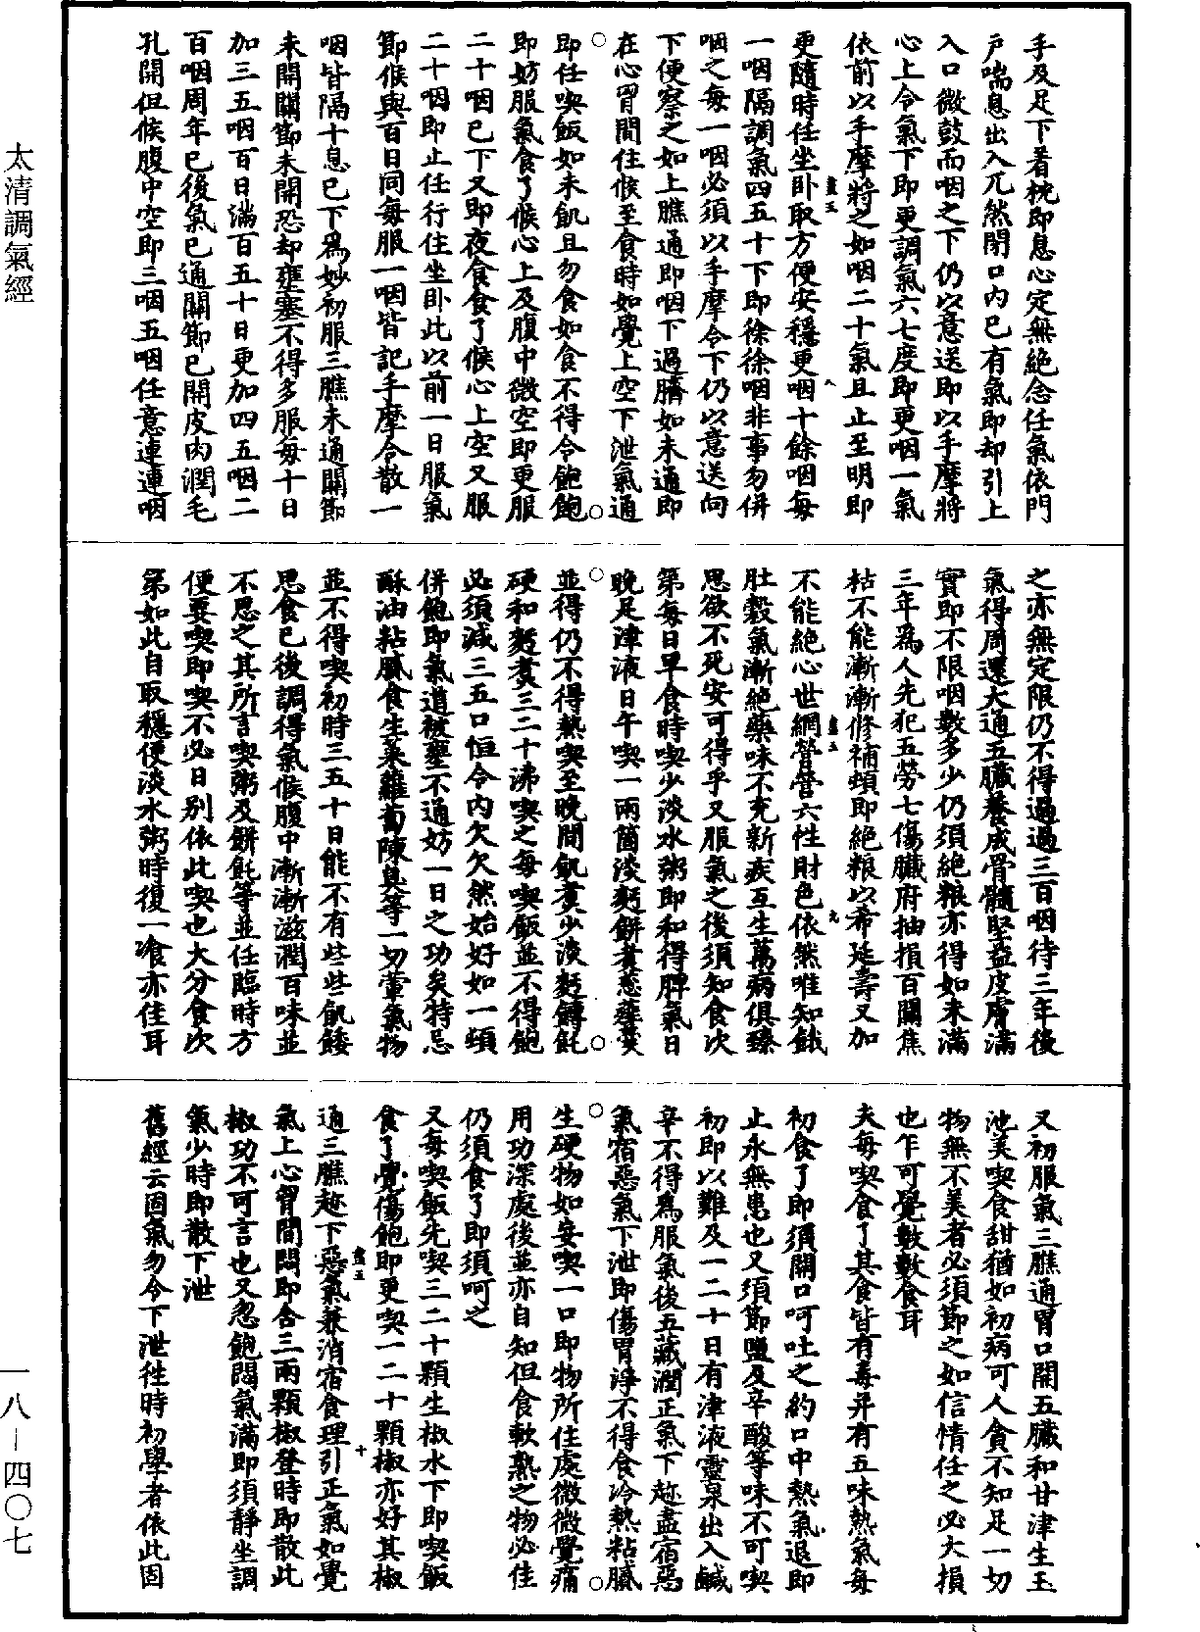 手及足下著枕即息心定無絕念任氣依門
戶喘息出入兀然閉口內已有氣即却引上
入口微鼓而咽之下仍以意送即以手摩將
心上令氣下即更調氣六七度即更咽一氣
依前以手摩將之如咽二十氣且止至明即
更隨時任坐卧取方便安穩更咽十餘咽每
一咽隔調氣四五十下即徐徐咽非事勿併
咽之每一咽必須以手摩令下仍以意送向
下便察之如上膲通即咽下過臍如未通即
在心胃間住候至食時如覺上空下泄氣通
即任喫飯如未飢且勿食如食不得令飽飽
即妨服氣食了候心上及腹中微空即更服
二十咽已下又即夜食食了候心上空又服
二十咽即止任行住坐卧此以前一日服氣
節候與百日同每服一咽皆記手摩令散一
咽皆隔十息已下為妙初服三膲未通關節
未開關節未開恐却壅塞不得多服每十日
加三五咽百日滿百五十日更加四五咽二
百咽周年已後氣已通關節已開皮肉潤毛
孔開但候腹中空即三咽五咽任意連連咽
之亦無定限仍不得過過三百咽待三年後
氣得周還大通五臟養成骨髓堅益皮膚滿
實即不限咽數多少仍須絕粮亦得如未滿
三年為人先犯五勞七傷臟府抽損百關焦
枯不能漸漸修補頓即絕粮以希延壽又加
不能絕心世網營營六性財色依然唯知餓
肚穀氣漸絕藥味不充新疾互生萬病俱臻
思欲不死安可得乎又服氣之後須知食次
第每日早食時喫少淡水粥即和得脾氣日
晚足津液日午喫一兩箇淡麪餅煮葱薤羹
並得仍不得熱喫至晚間飢煮少淡麪餺飥
硬和麪煮三二十沸喫之每喫飯並不得飽
必須減三五口恒令內欠欠然始好如一頓
併飽即氣道被壅不通妨一日之功矣特忌
酥油粘膩食生菜蘿蔔陳臭等一切葷氣物
並不得喫初時三五十日能不有些些飢餒
思食已後調得氣候腹中漸漸滋潤百味並
不思之其所言喫粥及餅飥等並任臨時方
便要喫即喫不必日別依此喫也大分食次
第如此自取穩便淡水粥時復一飡亦佳耳
又初服氣三膲通胃口開五臟和甘津生玉
池美喫食甜猶如初病可人貪不知足一切
物無不美者必須節之如信情任之必大損
也乍可覺數數食耳
夫每喫食了其食皆有毒并有五味熱氣每
初食了即須開口呵吐之約口中熱氣退即
止永無患也又須節鹽及辛酸等味不可喫
初即以難及一二十日有津液靈泉出入鹹
辛不得為服氣後五藏潤正氣下趂盡宿惡
氣宿惡氣下泄即傷胃淨不得食冷熱粘膩
生硬物如妄喫一口即物所住處微微覺痛
用功深處後並亦自知但食軟熟之物必佳
仍須食了即須呵之
又每喫飯先喫三二十顆生椒水下即喫飯
食了覺傷飽即更喫一二十顆椒亦好其椒
通三膲趂下惡氣兼消宿食理引正氣如覺
氣上心胷間悶即含三兩顆椒登時即散此
椒功不可言也又忽飽悶氣滿即須靜坐調
氣少時即散下泄
舊經云固氣勿令下泄徃時初學者依此固
太清調氣經
一八－四〇七